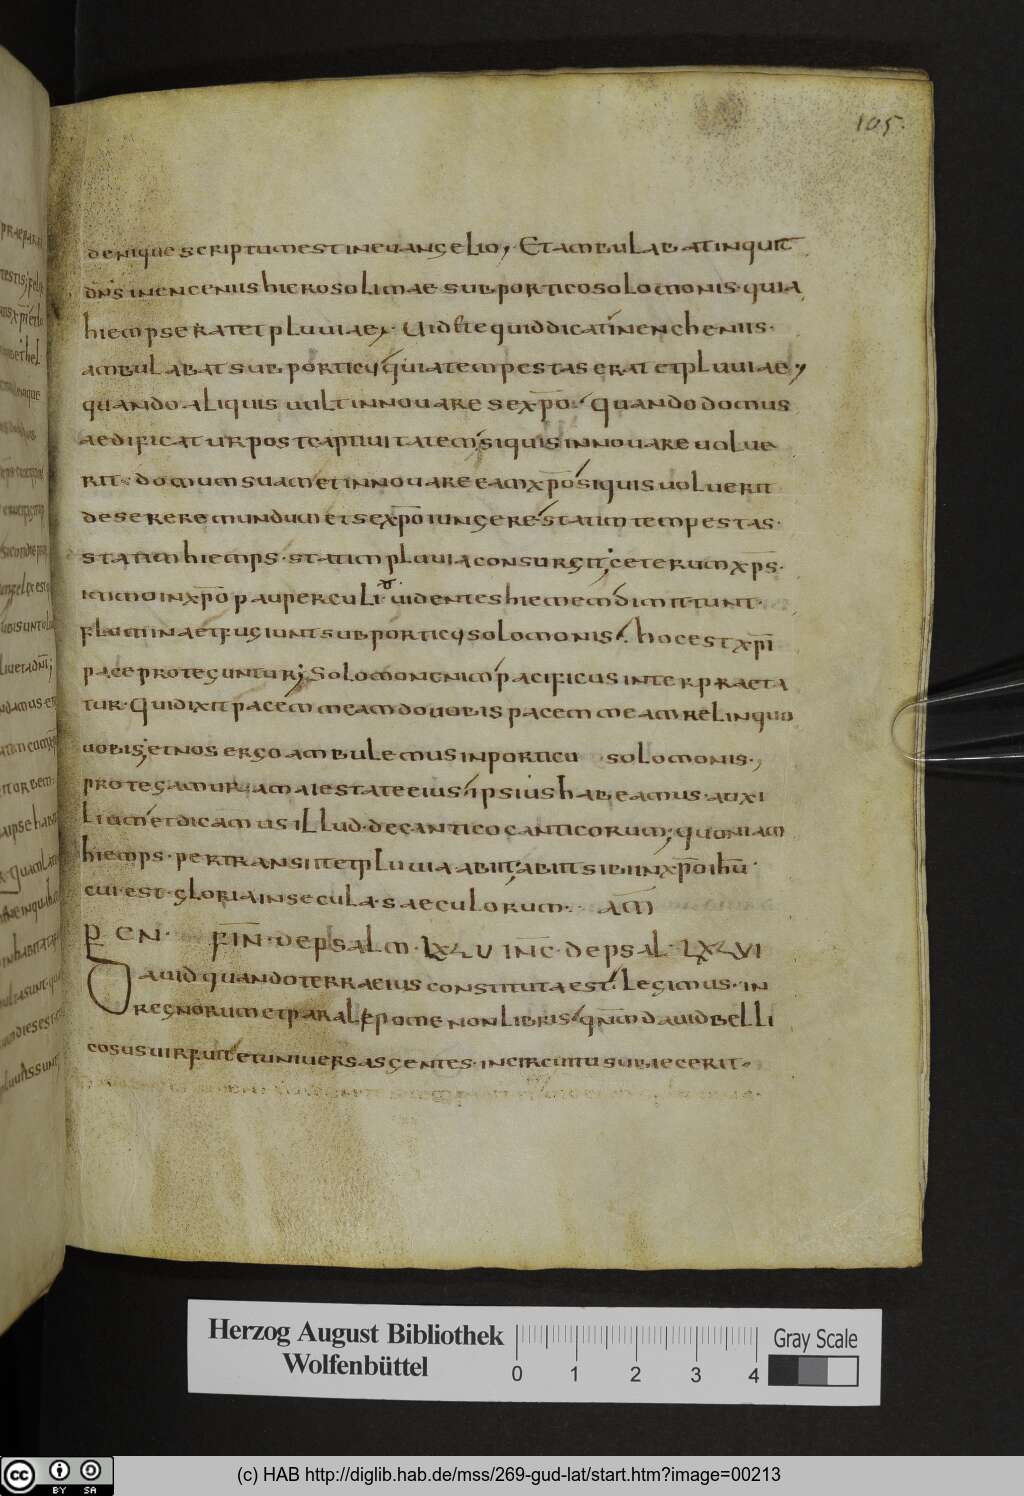 105.
denique scriptum est in euangelio, Et ambulabat inquit
dn̄s in encenus hierosolimae sub portico solomonis quia
hiemps erat et pluuiae, Uidete quid dicat in encheniis.
ambulabat sub porticu quia tempestas erat et pluuiae,
quando aliquis uult innouare se xp̄o. Quando domus
aedificatur post captiuitatem, siquis innouare uolue
rit domum suam et innouare eam xp̄o siquis uoluerit
deserere mundum et se xp̄o iungere statim tempestas.
statim hiemps. statim pluuia consurgit, ceterum xp̄s.
immo in xp̄o pauperculi uidentes hiemem dimittunt.
flumina et fugiunt sub porticu solomonis. hoc est xp̄i
pace proteguntur; Solomon enim pacificus interpraeta
tur. Qui dixit pacem meam do uobis pacem meam relinquo
uobis; et nos ergo ambulemus in porticu solomonis.,
protegamur iam aiestate eius ipsius habeamus auxi
lium et dicamus illud. de cantico canticorum; quoniam
hiemps. pertransiit et pluuia abiit, abiit sibi in xp̄o ih̄u.
cui est. gloria in secula saeculorum. am̄
EN. FIN̄. de psalm. LXLV INC̄. de psal. LXLVI
Dauid quando terra eius constituta est. legimus. in
regnorum et paralipomenon libris qn̄m dauid belli
cosus uir fuit et uniuersas gentes. in circuitu subiecerit.
Herzog August Bibliothek
Wolfenbüttel
0 1 2 3 4
Gray Scale
cc BY SA
(c) HAB http://diglib.hab.de/mss/269-gud-lat/start.htm?image=00213